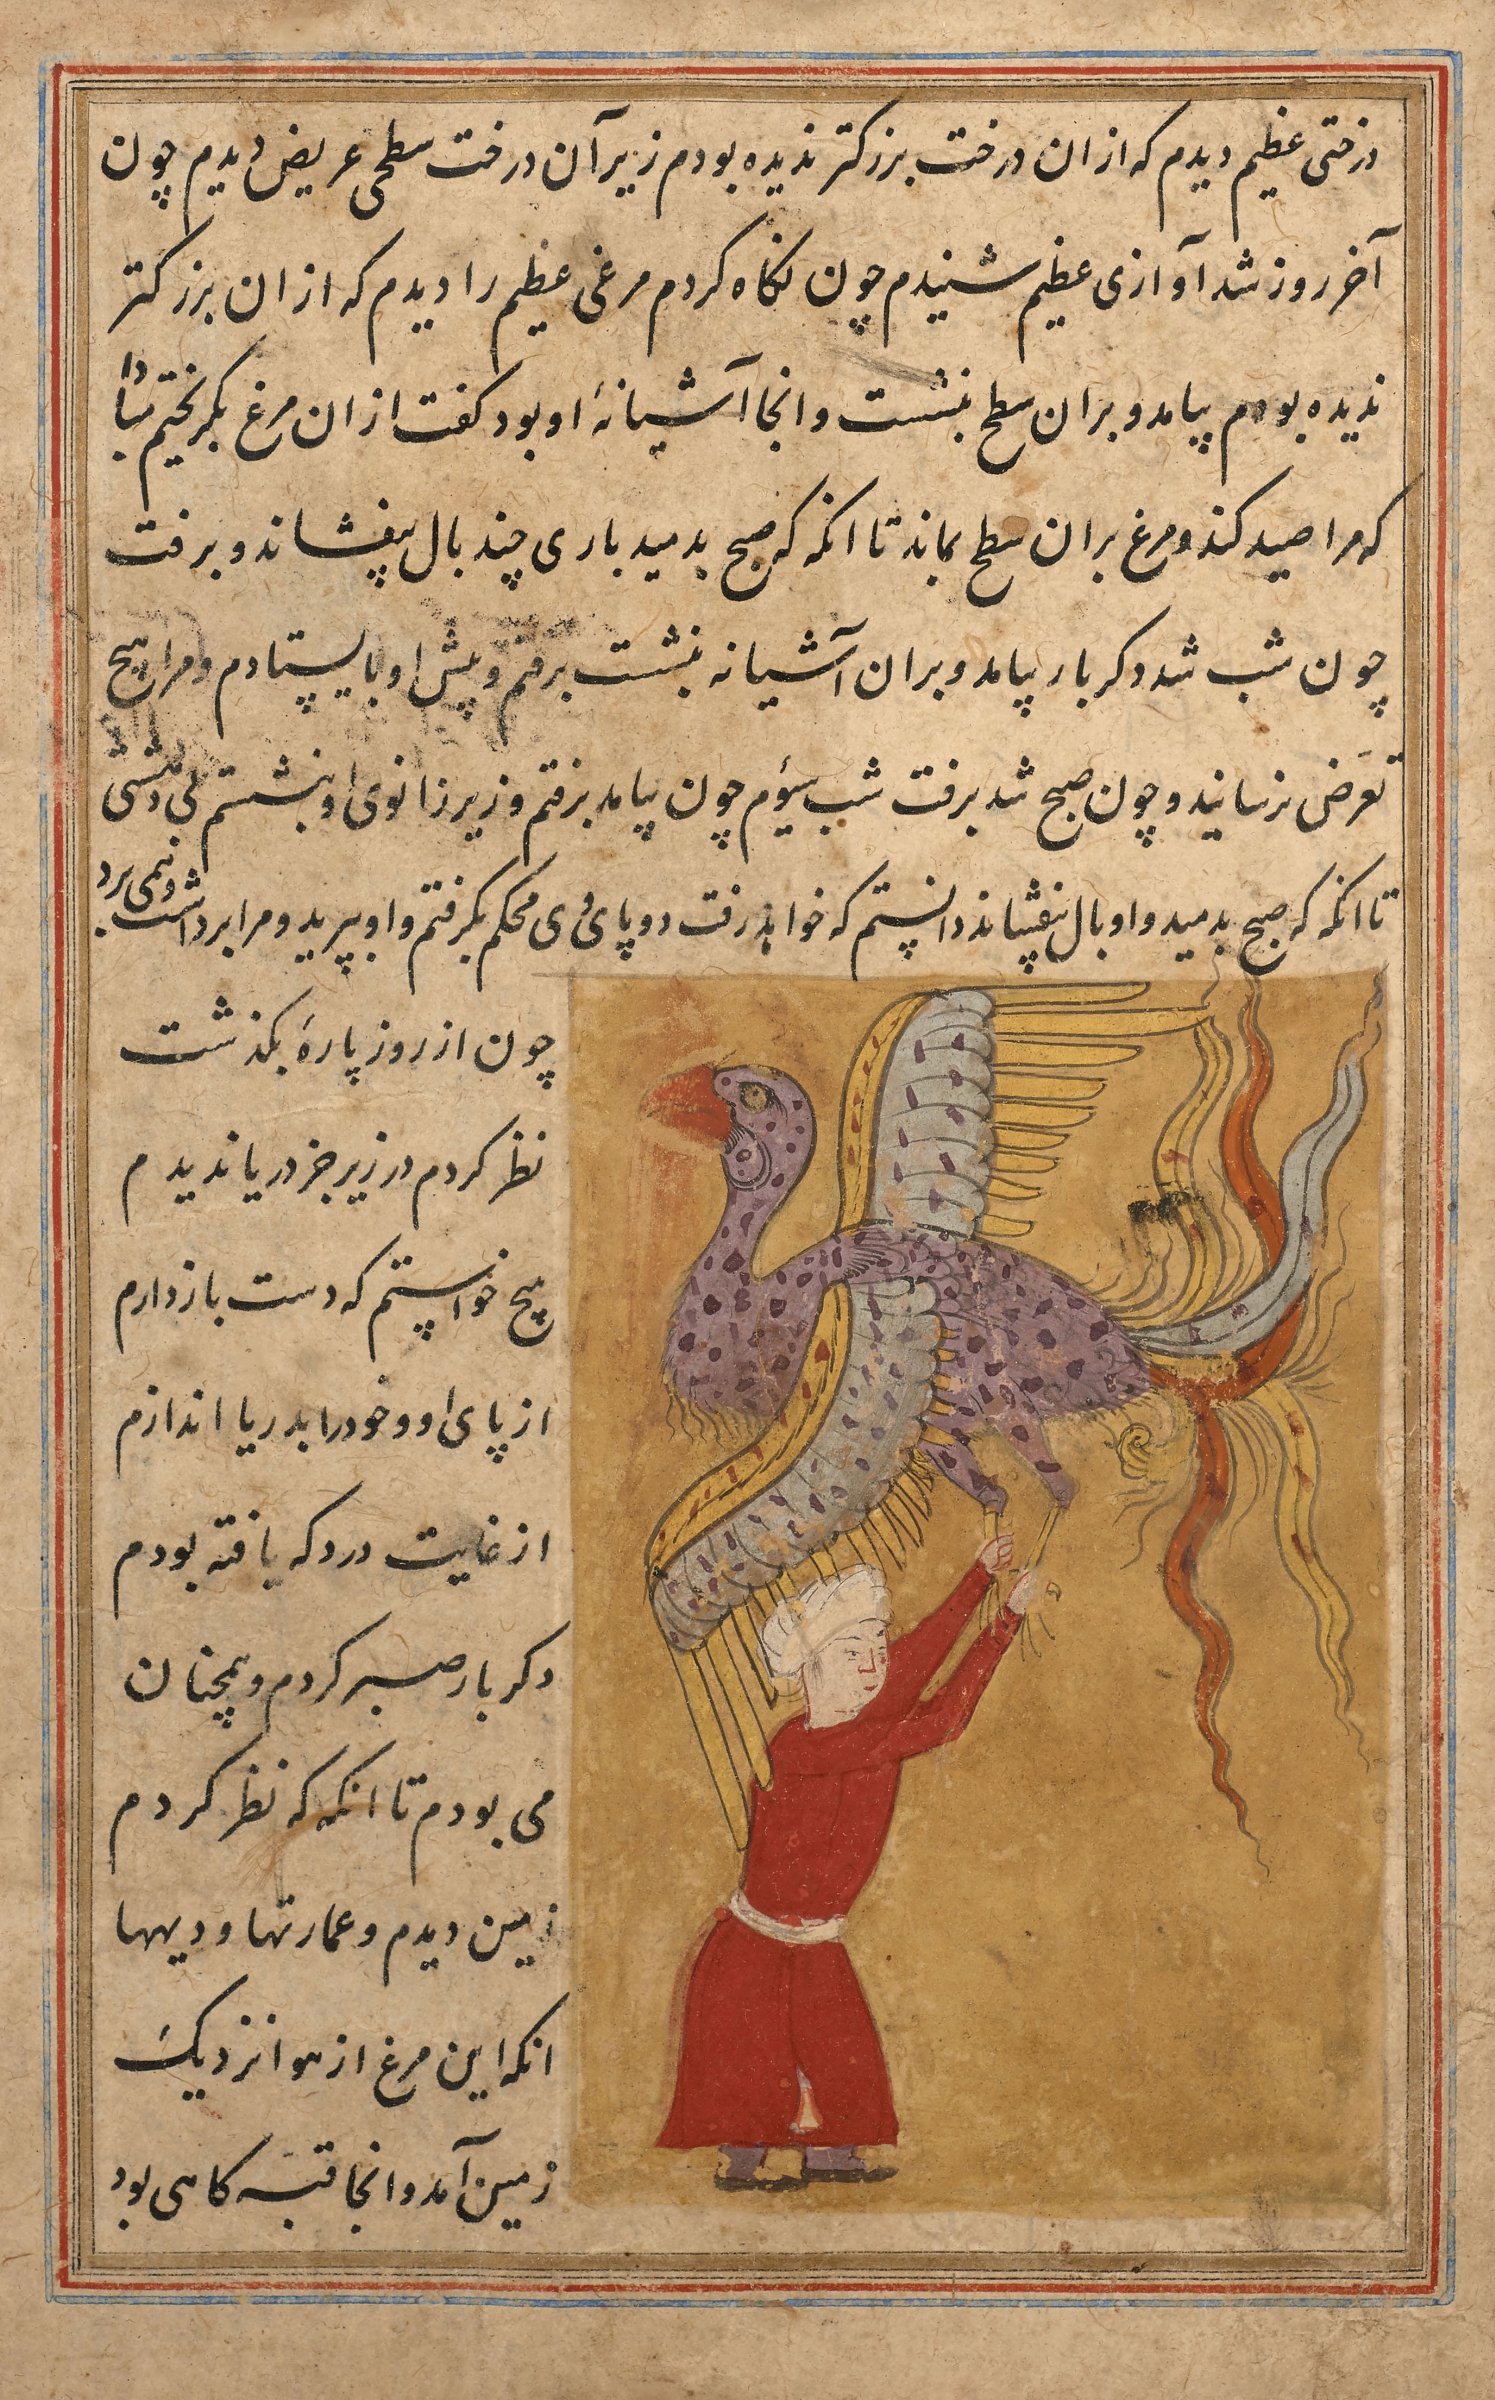 درختی عظیم دیدم که ازان درخت بزرکتر ندیده بودم زیر آن درخت سطحی عریض دیدم چون
آخر روز شد آوازی عظیم شنیدم چون نکاه کردم مرغی عظیم را دیدم که ازان بزرکتر
ندیده بودم بیامد و بران سطح بنشست و انجا آشیانهٔ او بود کفت ازان مرغ بکریختم مبادا
که مرا صید کند و مرغ بران سطح بماند تا انکه که صبح بدمید باری چند بال بیفشاند و برفت
چون شب شد دکر بار بیامد و بران آشیانه بنشست برفتم و پیش او بایستادم و مرا هیچ
تعرضی نرسانید و چون صبح شد برفت شب سیؤم چون بیامد برفتم و زیر زانوی او بنشستم بی دهشتی
تا انکه که صبح بدمید و او بال بیفشاند دانستم که خواهد رفت دو پای وی محکم بکرفتم و او بپرید و مرا برداشت و نمی برد
چون از روز پارهٔ بکذشت
نظر کردم در زیر جز دریا ندیدم
هیچ خواستم که دست باز دارم
از پای او و خود را بدریا اندازم
از غایت درد که یافته بودم
دکر بار صبر کردم و همچنان
می بودم تا انکه که نظر کردم
زمین دیدم و عمارتها و دیهها
انکه این مرغ از هوا نزدیک
زمین آمد و انجا قبه کاهی بود